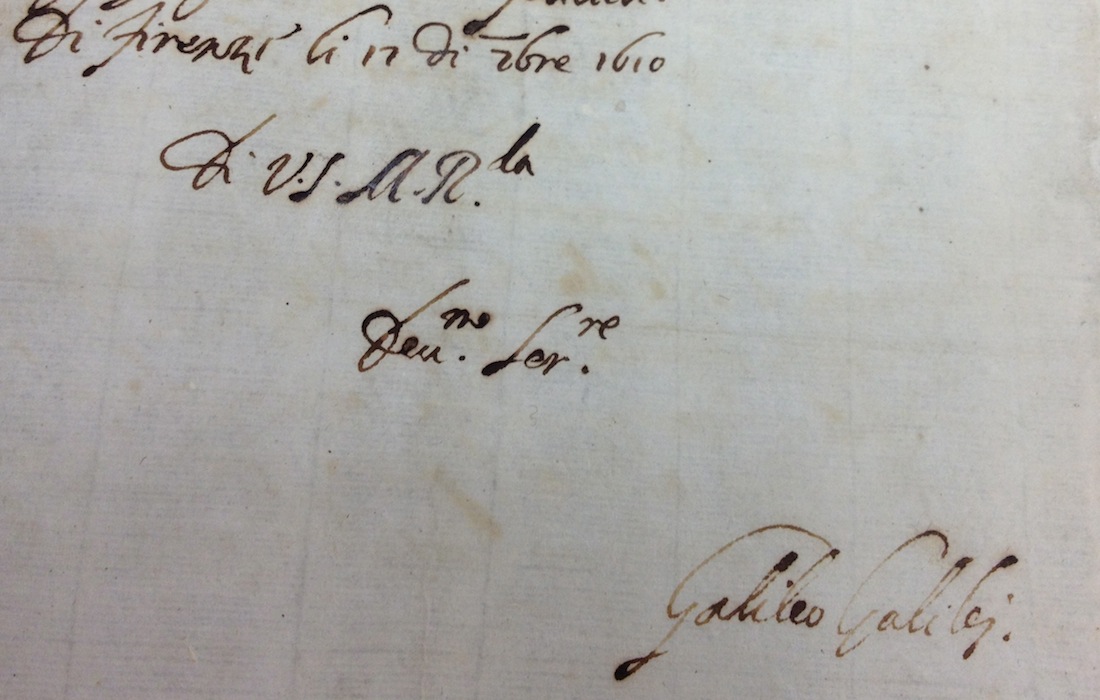 Di Firenze li 17 di 7bre 1610
Di V.S. M. R.da
Deu.mo Ser.re
Galileo Galilej.